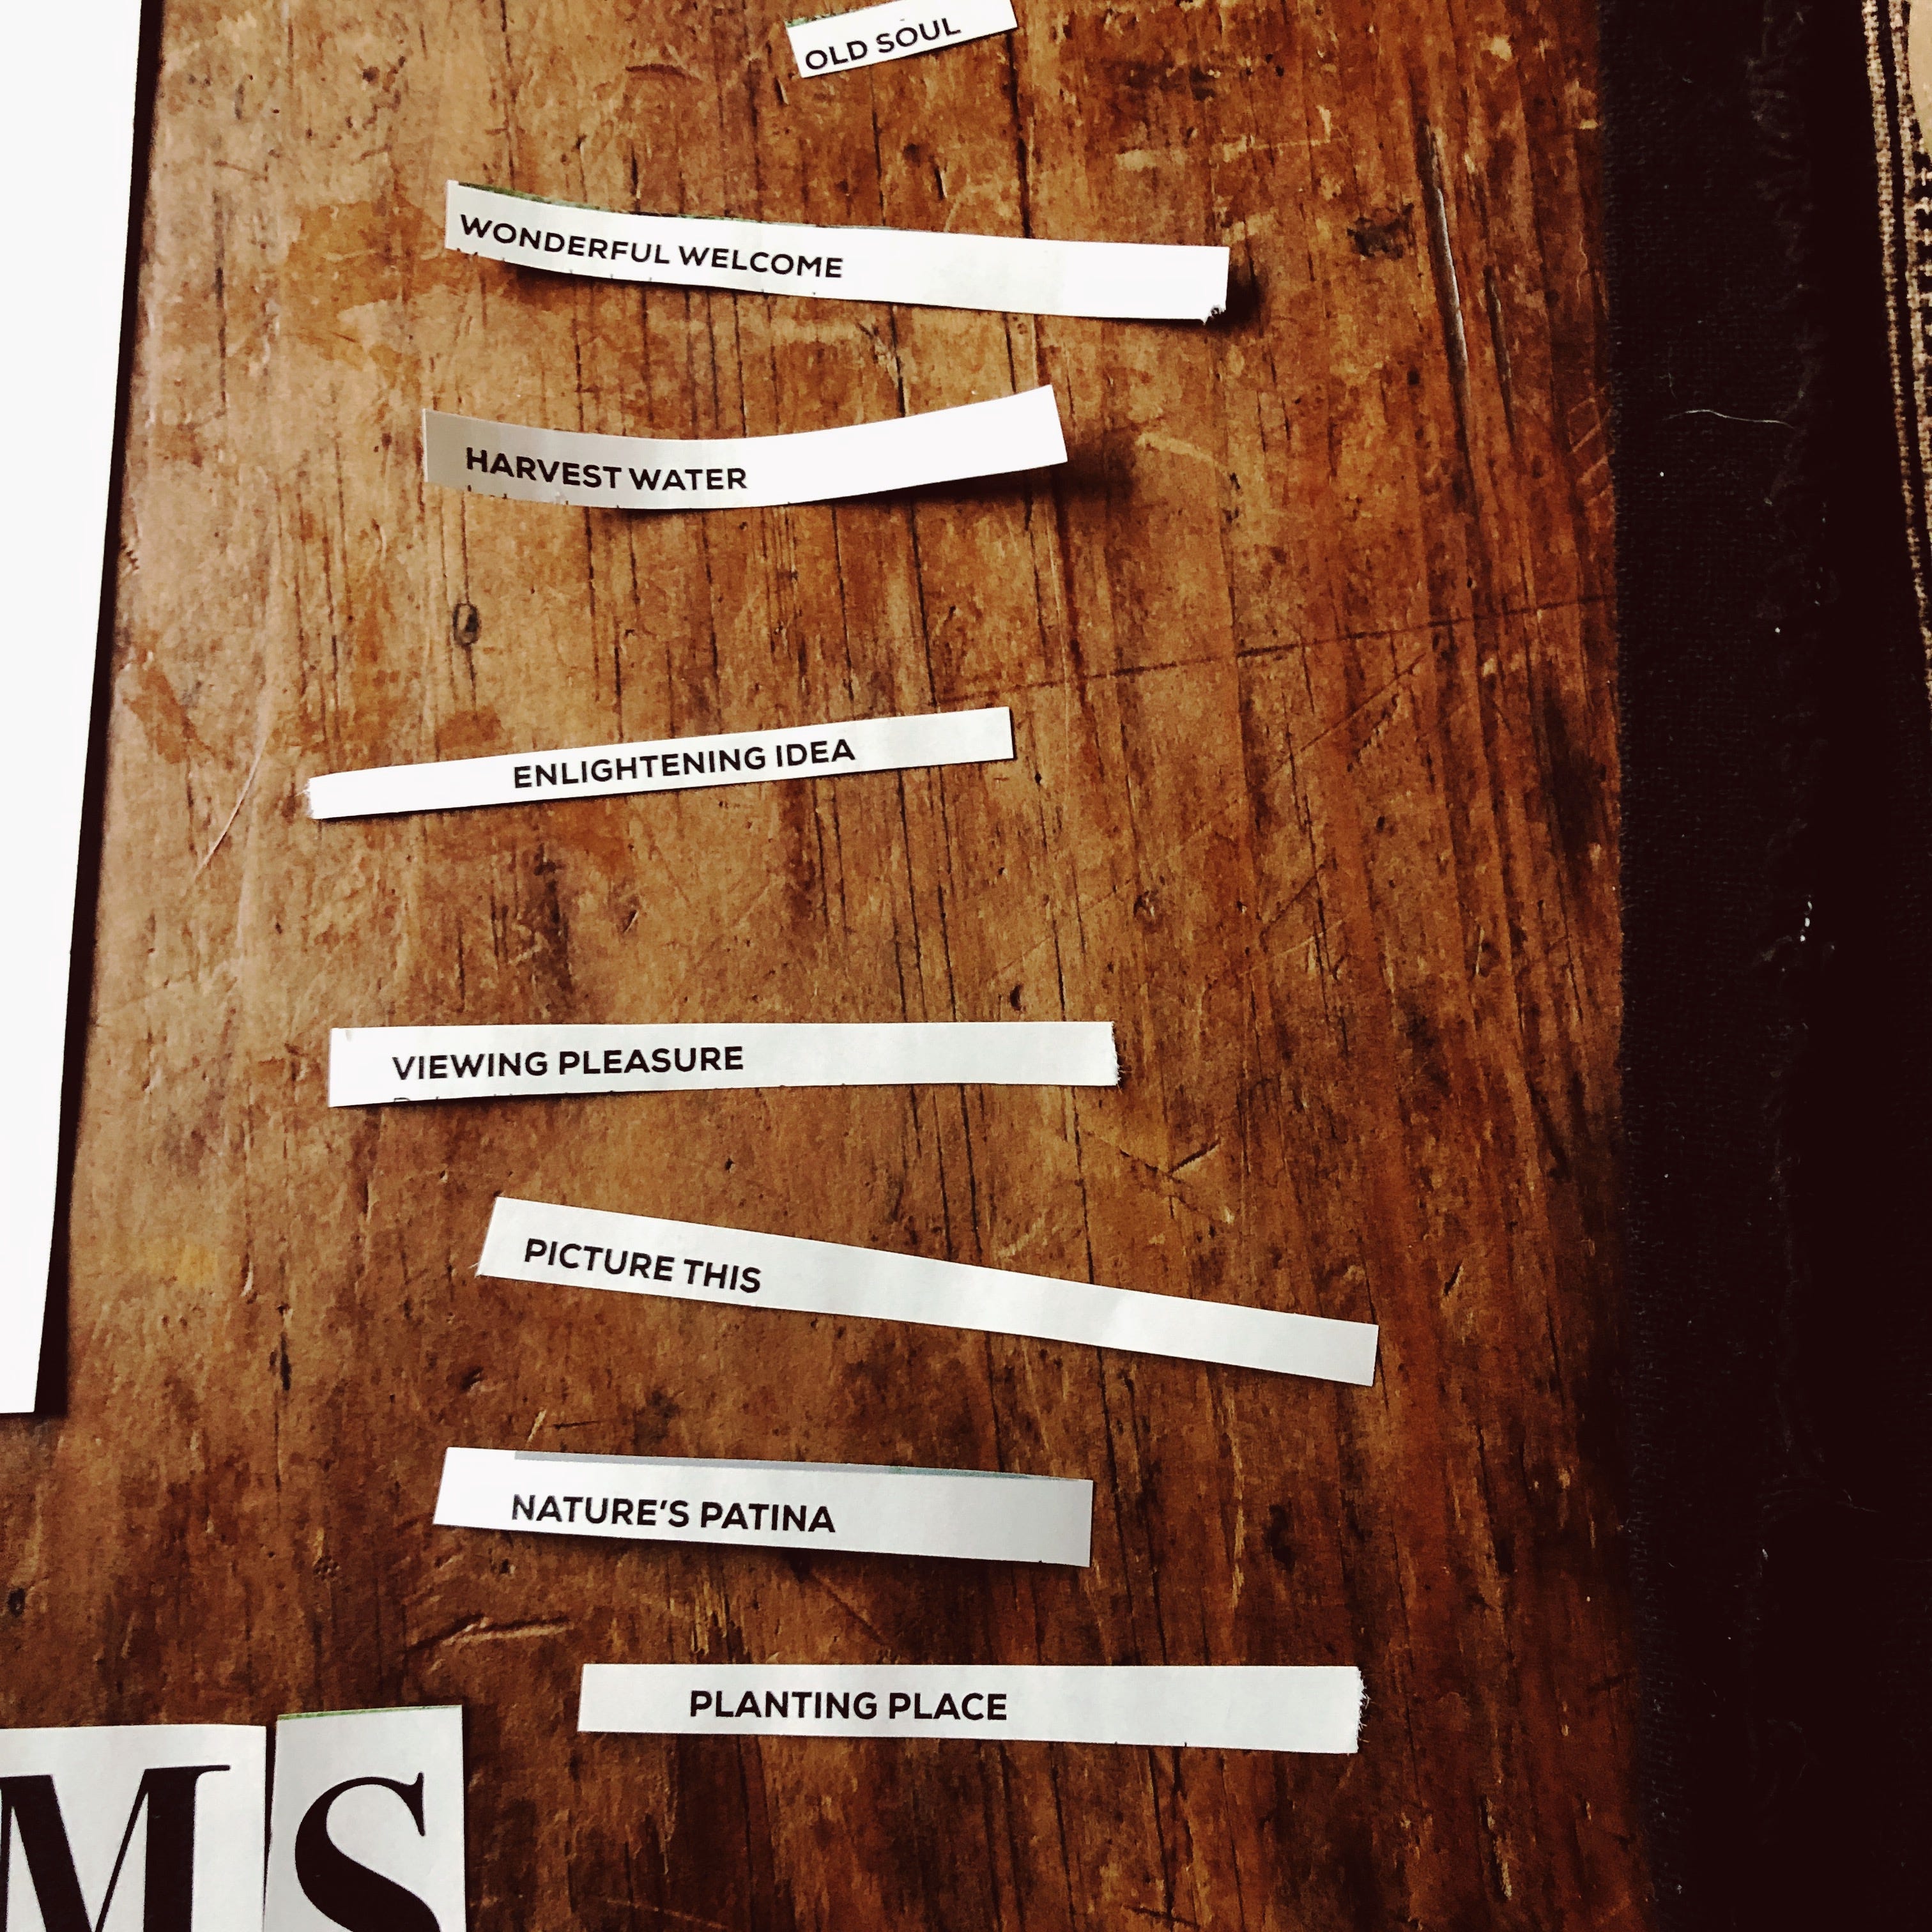 OLD SOUL
WONDERFUL WELCOME
HARVEST WATER
ENLIGHTENING IDEA
VIEWING PLEASURE
PICTURE THIS
NATURE'S PATINA
PLANTING PLACE
MS